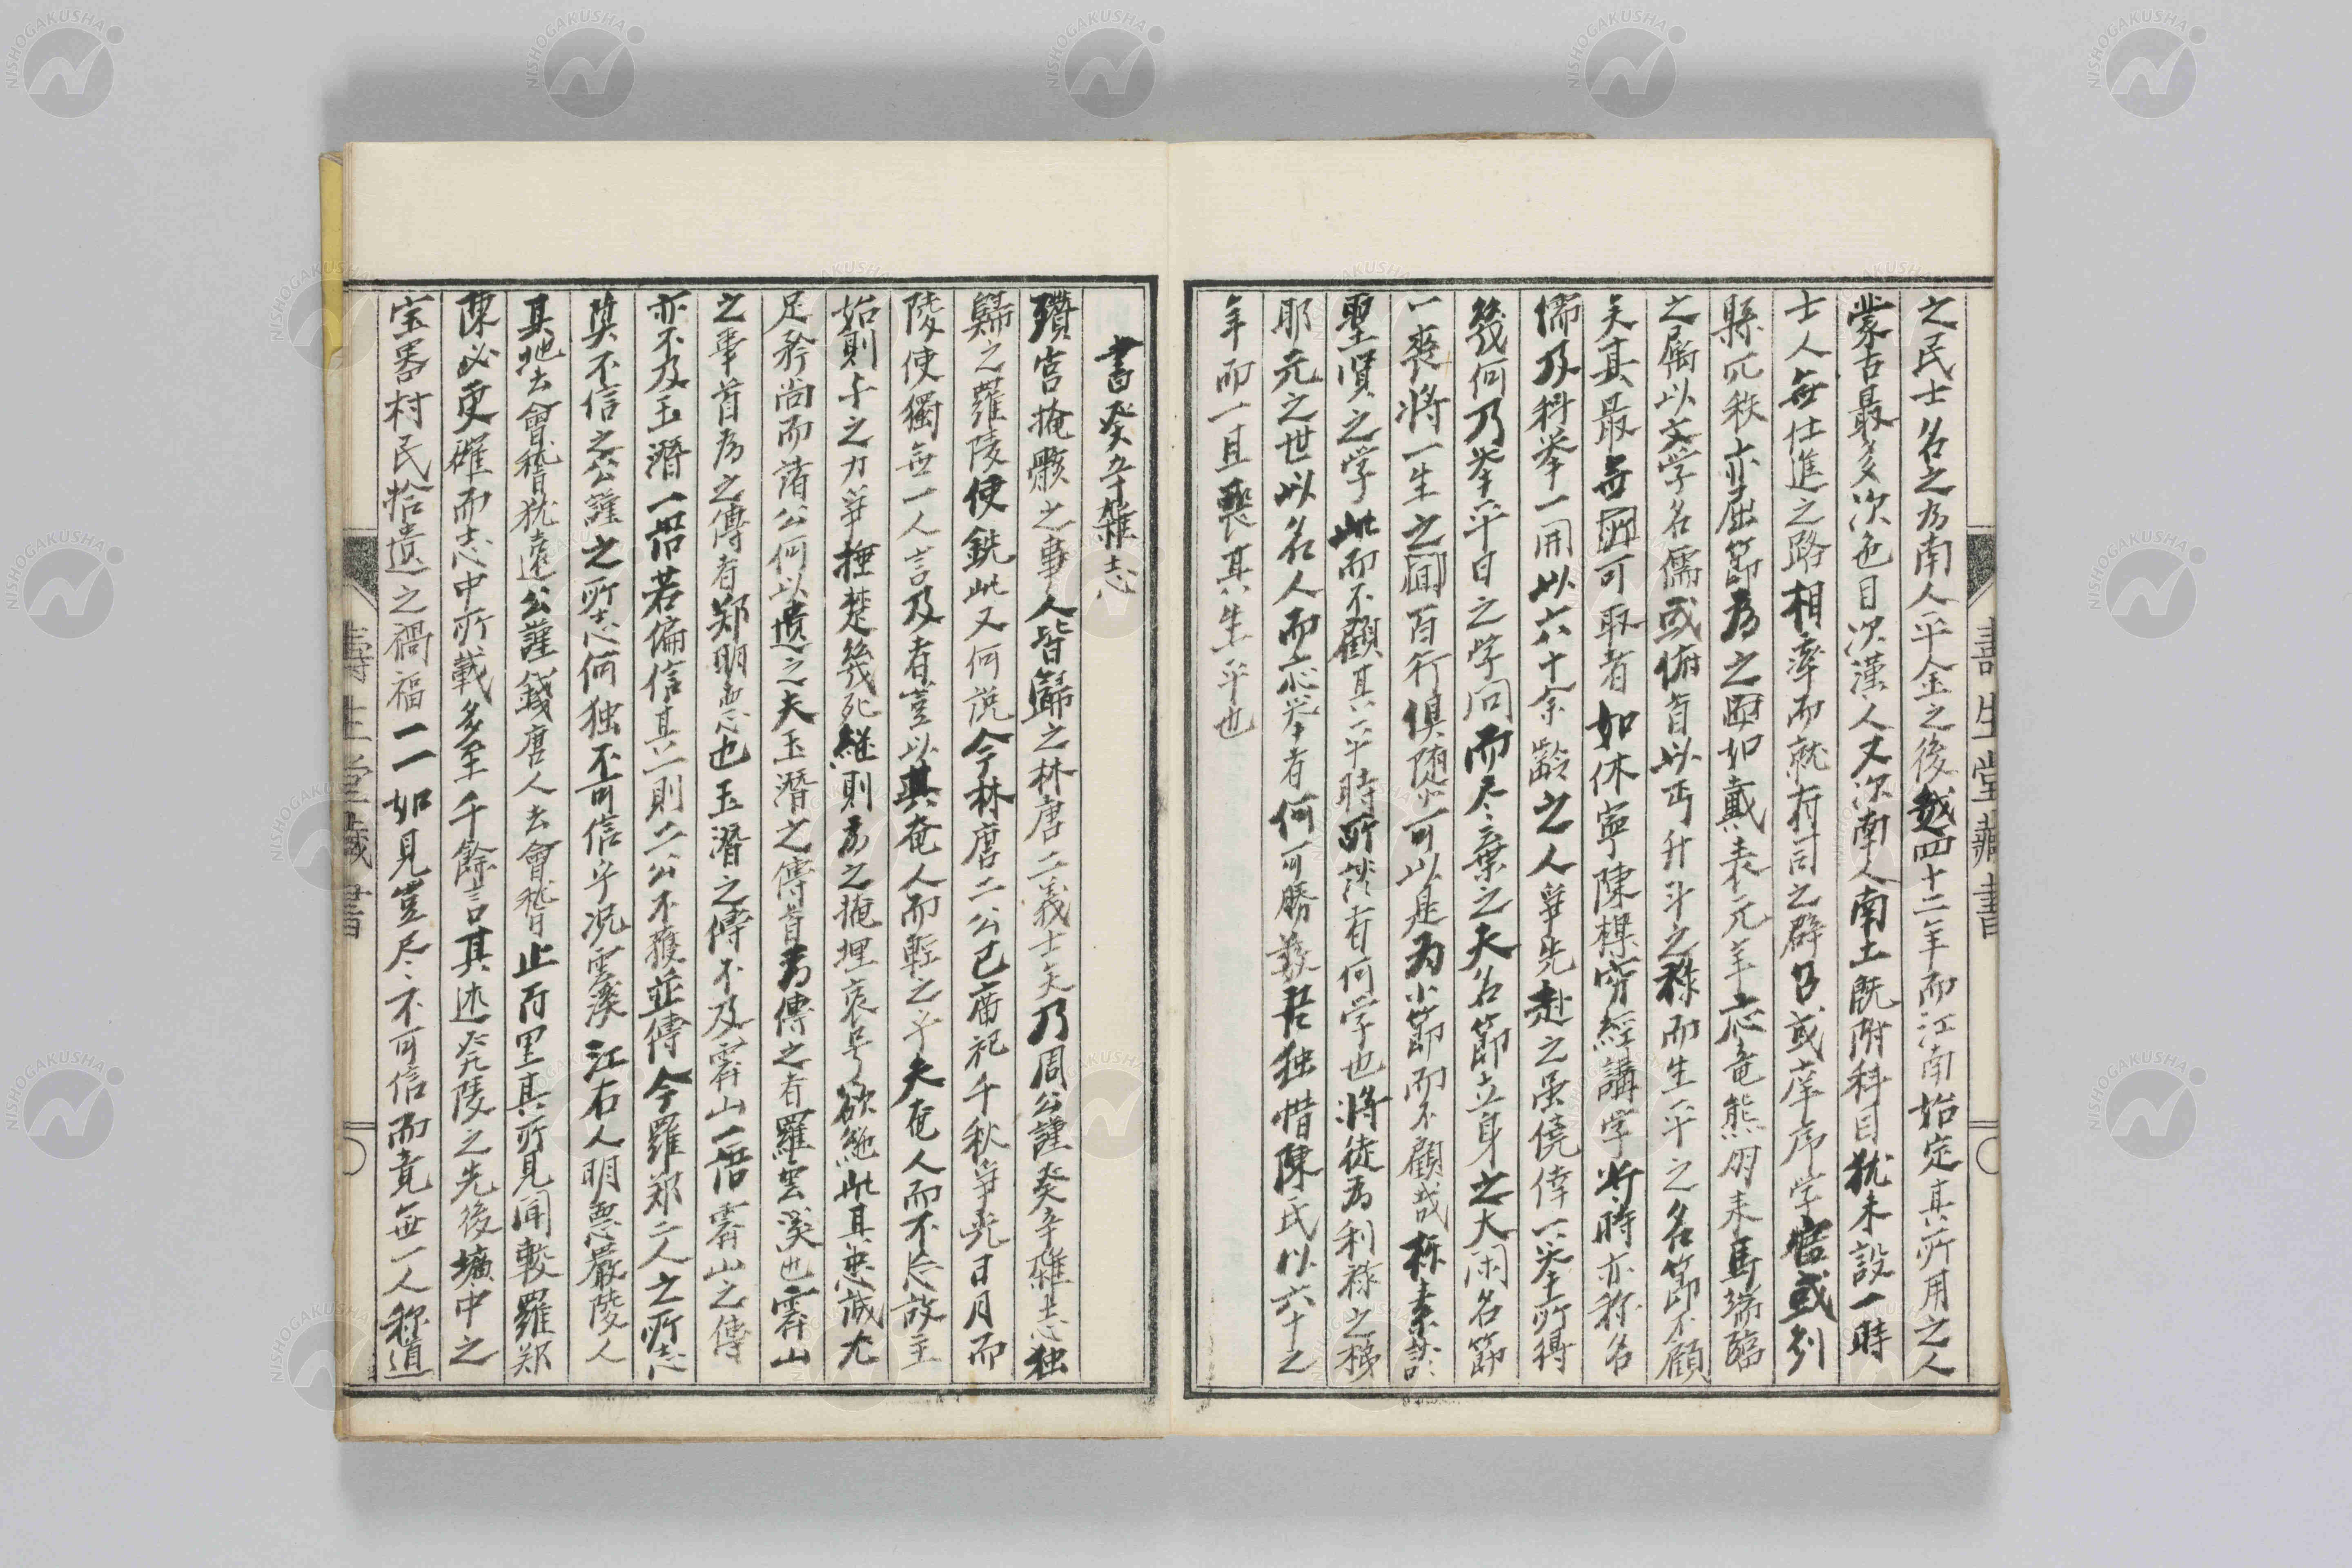 之民士名之为南人平金之後越四十二年而江南始定其所用之人
蒙古最多次色目次漢人又次南人南土既附科目犹未設一時
士人無仕進之路相率而就有司之辟召或庠序学官或列
縣冗秩亦屈節为之如戴表元牟应竜熊朋来馬端臨
之属以文学名儒或俯首以丐升斗之禄而生平之名節不顧
矣其最無所可取者如休寧陳櫟穷經講学当時亦称名
儒及科举一開以六十余齡之人争先赴之虽僥倖一举所得
幾何乃举平日之学問而尽棄之夫名節立身之大闲名節
一喪将一生之間百行俱隨可以是为小節而不顧哉称素談
聖賢之学此而不顧其平時所談者何学也将徒为利禄之梯
耶元之世以名人而应举者何可勝数吾独惜陳氏以六十之
年而一旦喪其生平也
書癸辛雜志
攢宮掩骸之事人皆歸之林唐二義士矣乃周公謹癸辛雜志独
歸之羅陵使銑此又何説今林唐二公已庙祀千秋争光日月而
陵使獨無一人言及者豈以其奄人而輕之乎夫奄人而不忘故主
始則与之力争捶楚幾死継則为之掩埋哀号欲絶此其忠誠尤
足矜尚而諸公何以遺之夫玉潛之傳首为傳之者羅雲溪也霽山
之事首为之傳者郑明悳也玉潛之傳不及霽山一語霽山之傳
亦不及玉潛一語若偏信其一則二公不獲並傳今羅郑二人之所志
奠不信之公謹之所志何独不可信乎况雲溪江右人明悳嚴陵人
其地去會稽犹遠公謹錢唐人去會稽止百里其所見聞較羅郑
陳必更確而志中所載多至千餘言其述発陵之先後壙中之
宝器村民拾遺之禍福一一如見豈尽不可信而竟無一人称道
壽生堂藏書